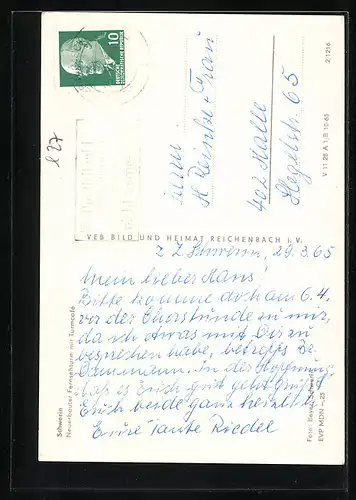 10
DEUTSCHE
DEMOKRATISCHE REPUBLIK
l 27
Herrn
H. Reinke + Frau
402 Halle
Hegelstr. 65
2/1216
V 11 28 A 1/B 10/65
VEB BILD UND HEIMAT REICHENBACH i. V.
z. Z. Schwerin, 29.3.65
Mein lieber Hans!
Bitte komme doch am 6.4.
vor der Chorstunde zu mir,
da ich etwas mit Dir zu
besprechen habe, betreffs
In der Hoffnung,
daß es Euch gut geht grüßt
Euch beide ganz herzl.
Eure Tante Riedel
Schwerin
Neuerbauter Fernsehturm mit Turmcafé
Foto: Beyer,
EVP MDN -,25